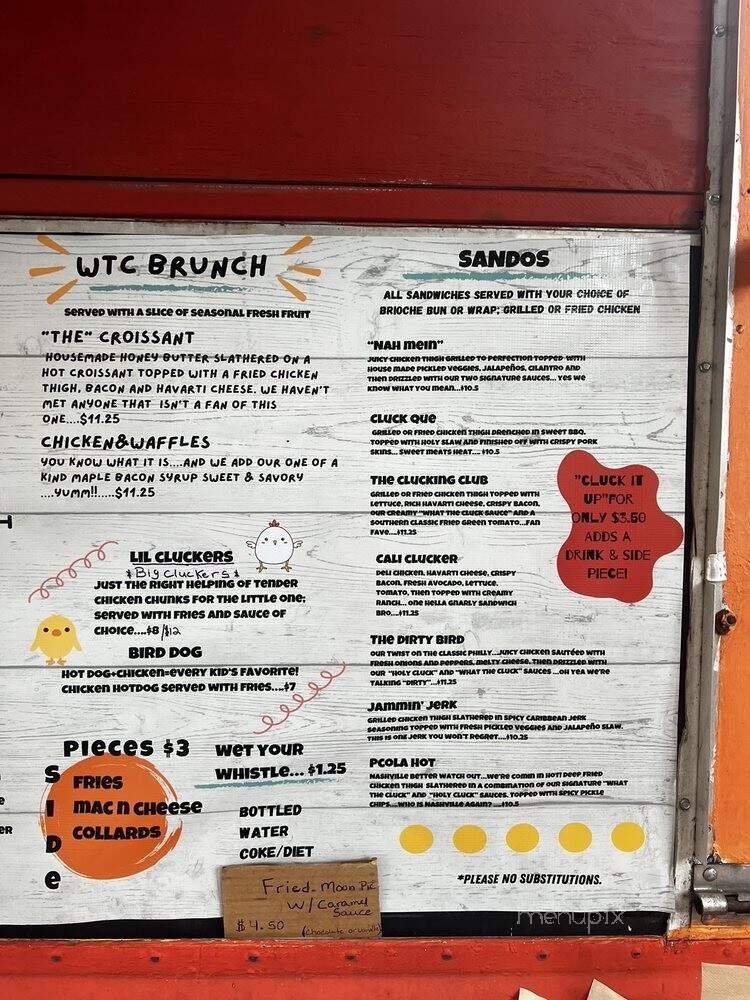 WTC BRUNCH
SERVED WITH A SLICE OF SEASONAL FRESH FRUIT
"THE" CROISSANT
HOUSEMADE HONEY BUTTER SLATHERED ON A
HOT CROISSANT TOPPED WITH A FRIED CHICKEN
THIGH, BACON AND HAVARTI CHEESE. WE HAVEN'T
MET ANYONE THAT ISN'T A FAN OF THIS
ONE....$11.25
CHICKEN&WAFFLES
YOU KNOW WHAT IT IS....AND WE ADD OUR ONE OF A
KIND MAPLE BACON SYRUP SWEET & SAVORY
....YUMM!!.....$11.25
LIL CLUCKERS
*Big Cluckers*
JUST THE RIGHT HELPING OF TENDER
CHICKEN CHUNKS FOR THE LITTLE ONE;
SERVED WITH FRIES AND SAUCE OF
CHOICE....$8/$12
BIRD DOG
HOT DOG+CHICKEN=EVERY KID'S FAVORITE!
CHICKEN HOTDOG SERVED WITH FRIES....$7
SIDE
PIECES $3
FRIES
MAC N CHEESE
COLLARDS
WET YOUR
WHISTLE... $1.25
BOTTLED
WATER
COKE/DIET
Fried Moon Pie
W/ Caramel
Sauce
$4.50
(chocolate or vanilla)
SANDOS
ALL SANDWICHES SERVED WITH YOUR CHOICE OF
BRIOCHE BUN OR WRAP; GRILLED OR FRIED CHICKEN
"NAH MEIN"
JUICY CHICKEN THIGH GRILLED TO PERFECTION TOPPED WITH
HOUSE MADE PICKLED VEGGIES, JALAPEÑOS, CILANTRO AND
THEN DRIZZLED WITH OUR TWO SIGNATURE SAUCES... YES WE
KNOW WHAT YOU MEAN...$10.5
CLUCK QUE
GRILLED OR FRIED CHICKEN THIGH DRENCHED IN SWEET BBQ,
TOPPED WITH HOLY SLAW AND FINISHED OFF WITH CRISPY PORK
SKINS... SWEET MEATS HEAT.... $10.5
THE CLUCKING CLUB
GRILLED OR FRIED CHICKEN THIGH TOPPED WITH
LETTUCE, RICH HAVARTI CHEESE, CRISPY BACON,
OUR CREAMY "WHAT THE CLUCK SAUCE" AND A
SOUTHERN CLASSIC FRIED GREEN TOMATO...FAN
FAVE....$11.25
"CLUCK IT
UP"FOR
ONLY $3.50
ADDS A
DRINK & SIDE
PIECE!
CALI CLUCKER
DELI CHICKEN, HAVARTI CHEESE, CRISPY
BACON, FRESH AVOCADO, LETTUCE,
TOMATO, THEN TOPPED WITH CREAMY
RANCH... ONE HELLA GNARLY SANDWICH
BRO...$11.25
THE DIRTY BIRD
OUR TWIST ON THE CLASSIC PHILLY...JUICY CHICKEN SAUTÉED WITH
FRESH ONIONS AND PEPPERS, MELTY CHEESE, THEN DRIZZLED WITH
OUR "HOLY CLUCK" AND "WHAT THE CLUCK" SAUCES ...OH YEA WE'RE
TALKING "DIRTY"...$11.25
JAMMIN' JERK
GRILLED CHICKEN THIGH SLATHERED IN SPICY CARIBBEAN JERK
SEASONING TOPPED WITH FRESH PICKLED VEGGIES AND JALAPEÑO SLAW.
THIS IS ONE JERK YOU WON'T REGRET...$10.25
PCOLA HOT
NASHVILLE BETTER WATCH OUT...WE'RE COMIN IN HOT! DEEP FRIED
CHICKEN THIGH SLATHERED IN A COMBINATION OF OUR SIGNATURE "WHAT
THE CLUCK" AND "HOLY CLUCK" SAUCES. TOPPED WITH SPICY PICKLE
CHIPS....WHO IS NASHVILLE AGAIN? ....$10.5
*PLEASE NO SUBSTITUTIONS.
menupix